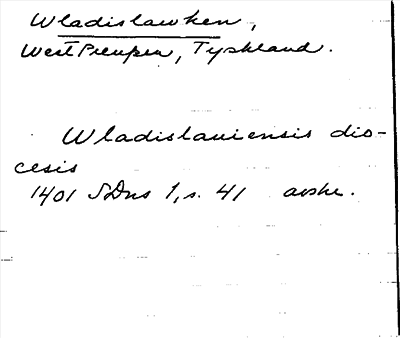 Wladislawken,
West Preupen, Tyskland.
Wladislauiensis dio-
cesis
1401 SDns 1, s. 41 avskr.